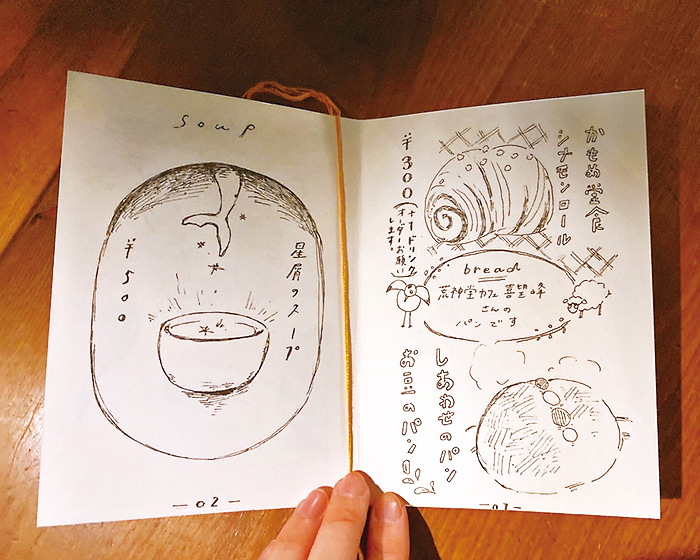 soup
星屑のスープ
¥500
-02-
かもめ堂食
シナモンロール
¥300
(+1ドリンク
オーダーお願い
します。)
bread
荒神堂カフェ喜望峰
さんの
パンです
しあわせのパン
お豆のパン